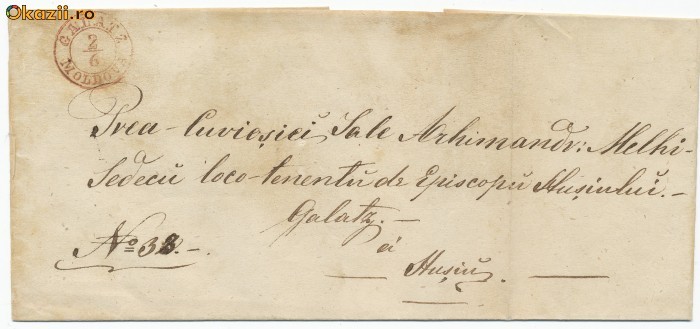 Okazii.ro
GALATZ
2/6
MOLDOVA
Prea-Cuvieșiei Sale Arhimandr: Melhi-
Sedecu loco-tenentŭ de Episcopŭ Hușiului.-
Galatz.-
No 38.-
á
Hușiŭ.